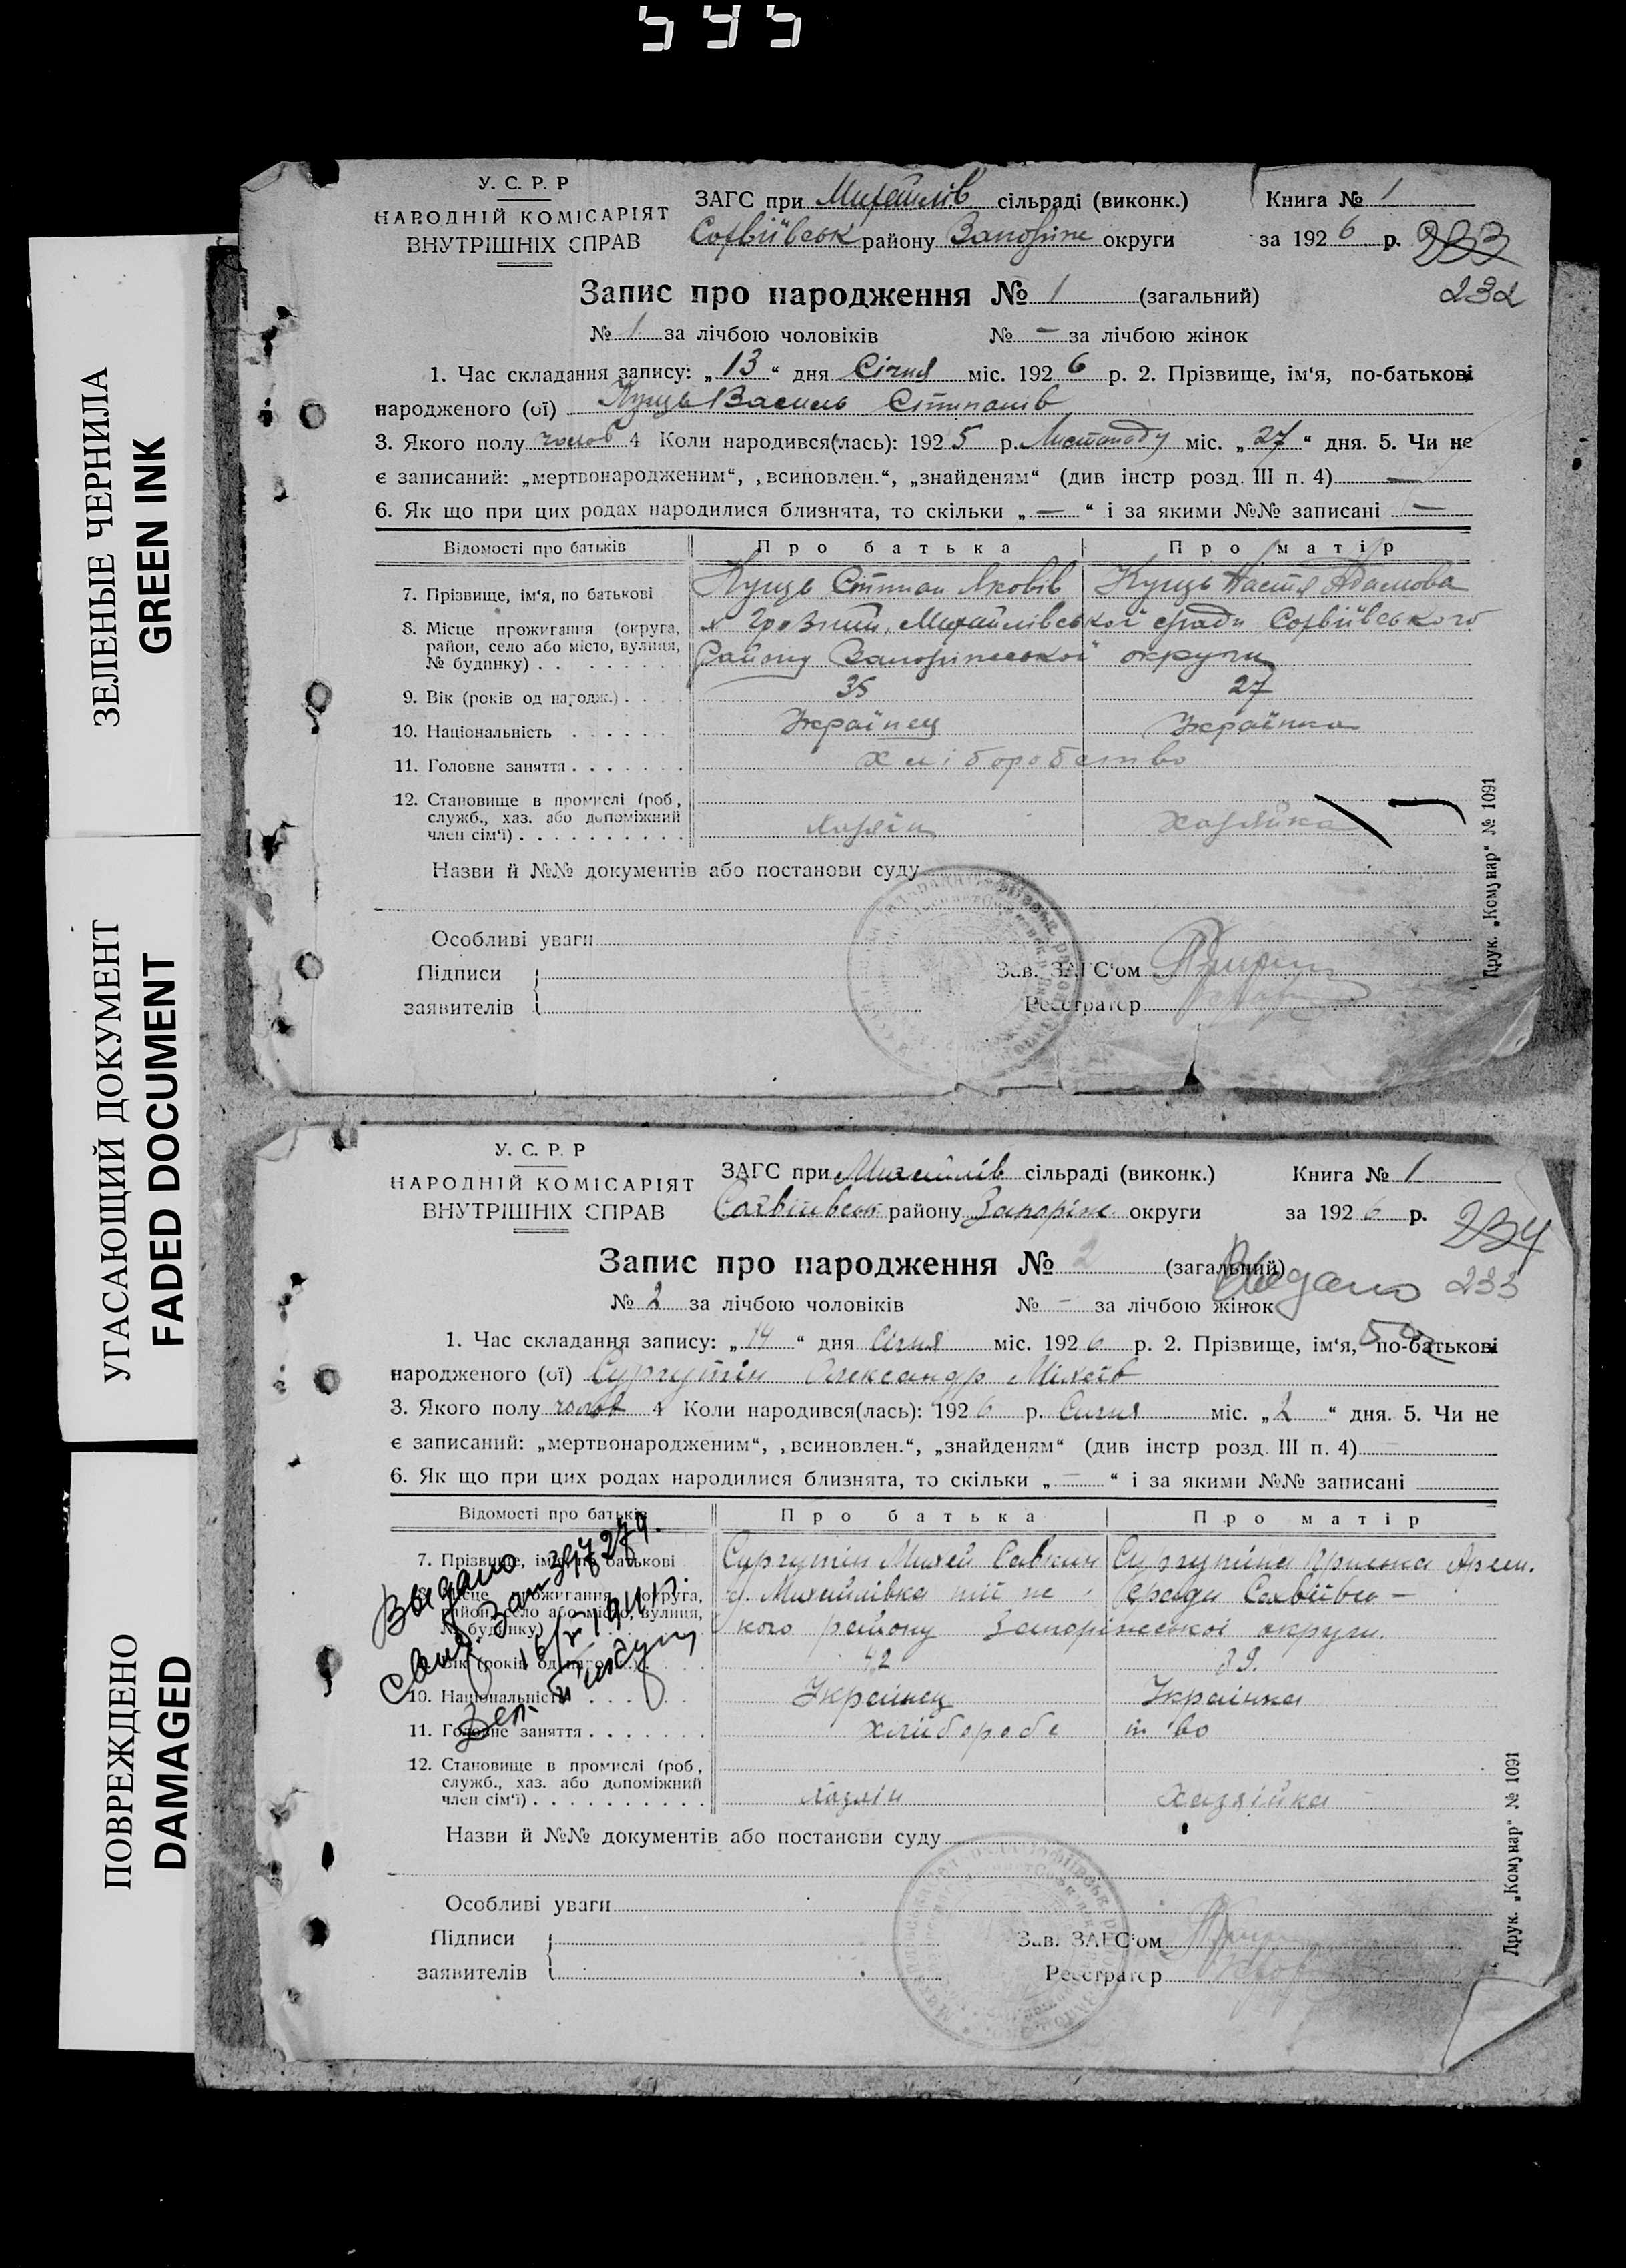 595
ЗЕЛЕНЫЕ ЧЕРНИЛА
GREEN INK
УГАСАЮЩИЙ ДОКУМЕНТ
FADED DOCUMENT
ПОВРЕЖДЕНО
DAMAGED
У. С. Р. Р
НАРОДНІЙ КОМІСАРІЯТ
ВНУТРІШНІХ СПРАВ
ЗАГС при Михайлів сільраді (виконк.)
Софіївськ району Запоріж округи
Книга № 1
за 1926 р.
233
232
Запис про народження № 1 (загальний)
№ 1 за лічбою чоловіків № — за лічбою жінок
1. Час складання запису: „13“ дня Січня міс. 1926 р. 2. Прізвище, ім‘я, по-батькові
народженого (ої) Куць Василь Степанів
3. Якого полу чолов 4 Коли народився(лась): 1925 р. Листопаду міс. „27“ дня. 5. Чи не
є записаний: „мертвонародженим“, „всиновлен.“, „знайденям“ (див інстр розд. III п. 4) —
6. Як що при цих родах народилися близнята, то скільки „—“ і за якими №№ записані —
Відомості про батьків Про батька Про матір
7. Прізвище, ім‘я, по батькові Куць Степан Яковів Куць Настя Адамова
8. Місце прожигання (округа, Михайлівської сради Софіївського
район, село або місто, вулиця, Району Запоріжської округи
№ будинку)
9. Вік (років од народж.) 35 27
10. Національність Українец Українка
11. Головне заняття Хліборобство
12. Становище в промислі (роб,
служб., хаз. або допоміжний
член сім‘ї) Хазяін Хазяйка
Назви й №№ документів або постанови суду
Особливі уваги
Підписи
заявителів
Зав. ЗАГС‘ом
Реєстратор
Друк. „Комунар“ № 1091
У. С. Р. Р
НАРОДНІЙ КОМІСАРІЯТ
ВНУТРІШНІХ СПРАВ
ЗАГС при Михайлів сільраді (виконк.)
Софіївськ району Запоріж округи
Книга № 1
за 1926 р.
234
233
Запис про народження № 2 (загальний)
Видано
№ 2 за лічбою чоловіків № — за лічбою жінок
1. Час складання запису: „14“ дня Січня міс. 1926 р. 2. Прізвище, ім‘я, по-батькові
народженого (ої) Сургутін Олександр Міхеів
3. Якого полу чолов 4 Коли народився(лась): 1926 р. Січня міс. „2“ дня. 5. Чи не
є записаний: „мертвонародженим“, „всиновлен.“, „знайденям“ (див інстр розд. III п. 4)
6. Як що при цих родах народилися близнята, то скільки „—“ і за якими №№ записані
Відомості про батьків Про батька Про матір
7. Прізвище, ім‘я, по батькові Сургутін Михей Савкин Сургутіна
8. Місце прожигання (округа, Михайлівка сради
район, село або місто, вулиця, кого району Запоріжської округи.
№ будинку)
9. Вік (років од народж.) 42 39.
10. Національність Украінец Украінка
11. Головне заняття
12. Становище в промислі (роб,
служб., хаз. або допоміжний
член сім‘ї) Хазяін Хазяійка
Выдано
Назви й №№ документів або постанови суду
Особливі уваги
Підписи
заявителів
Зав. ЗАГС‘ом
Реєстратор
Друк. „Комунар“ № 1091